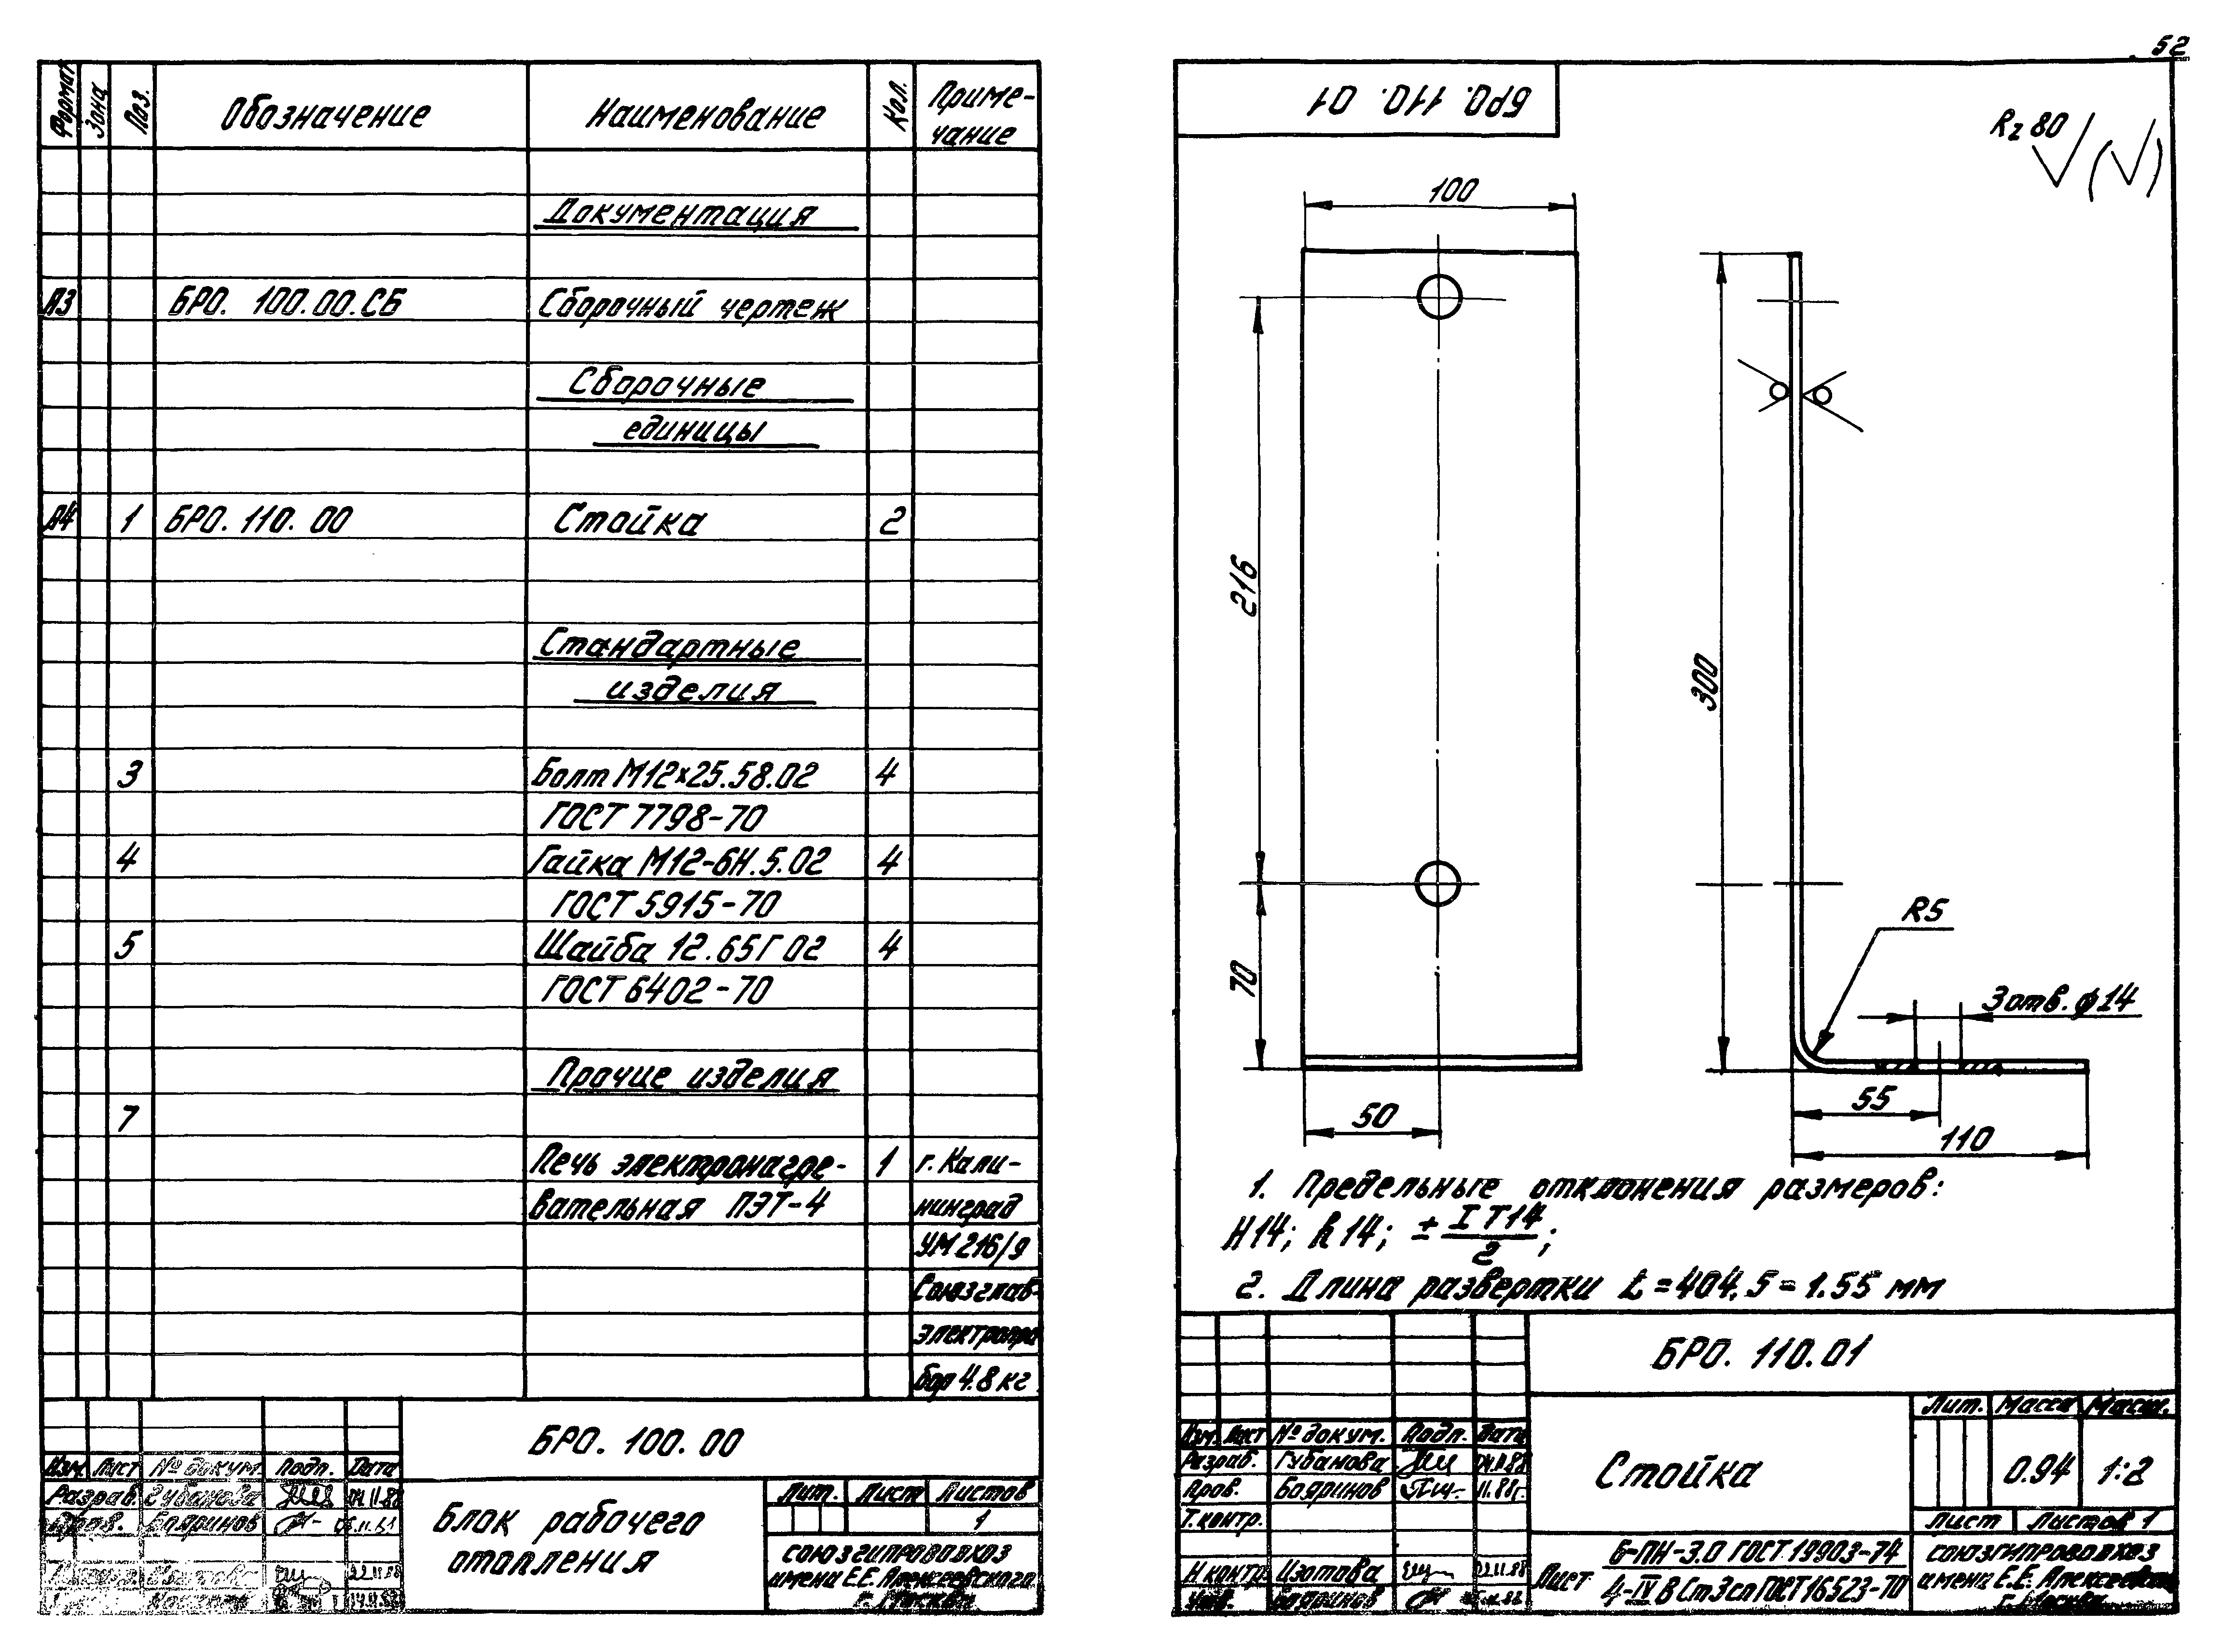 52
Формат Зона Поз. Обозначение Наименование Кол. Приме-
чание
Документация
А3 БРО. 100.00.СБ Сборочный чертеж
Сборочные
единицы
А4 1 БРО. 110. 00 Стойка 2
Стандартные
изделия
3 Болт М12×25.58.02 4
ГОСТ 7798-70
4 Гайка М12-6Н.5.02 4
ГОСТ 5915-70
5 Шайба 12.65Г 02 4
ГОСТ 6402-70
Прочие изделия
7
Печь электронагре- 1 г. Кали-
вательная ПЭТ-4 нинград
УМ 216/9
Союзглав-
электропри
бор 4.8 кг
БРО. 100. 00
Изм. Лист № докум. Подп. Дата
Разраб. Губанова 04.11.88
Пров. Бояринов
Блок рабочего
отопления
Лит. Лист Листов
1
СОЮЗГИПРОВОДХОЗ
имена Е.Е. Алексеевского
г. Москва
БРО. 110. 01
Rz 80
100
216
70
50
300
R5
3 отв. ф14
55
110
1. Предельные отклонения размеров:
H14; h14; ± IT14/2;
2. Длина развертки L=404,5 = 1.55 мм
БРО. 110.01
Изм. Лист № докум. Подп. Дата
Разраб. Губанова 04.11.88
Пров. Бояринов 11.88г.
Т. контр.
Н контр. Изотова 22.11.88
Утв. Бояринов
Стойка
Лит. Масса Масш.
0.94 1:2
Лист Листов 1
Лист б-ПН-3.0 ГОСТ 19903-74
4-IV В Ст3сп ГОСТ 16523-70
СОЮЗГИПРОВОДХОЗ
имена Е.Е. Алексеевского
г. Москва